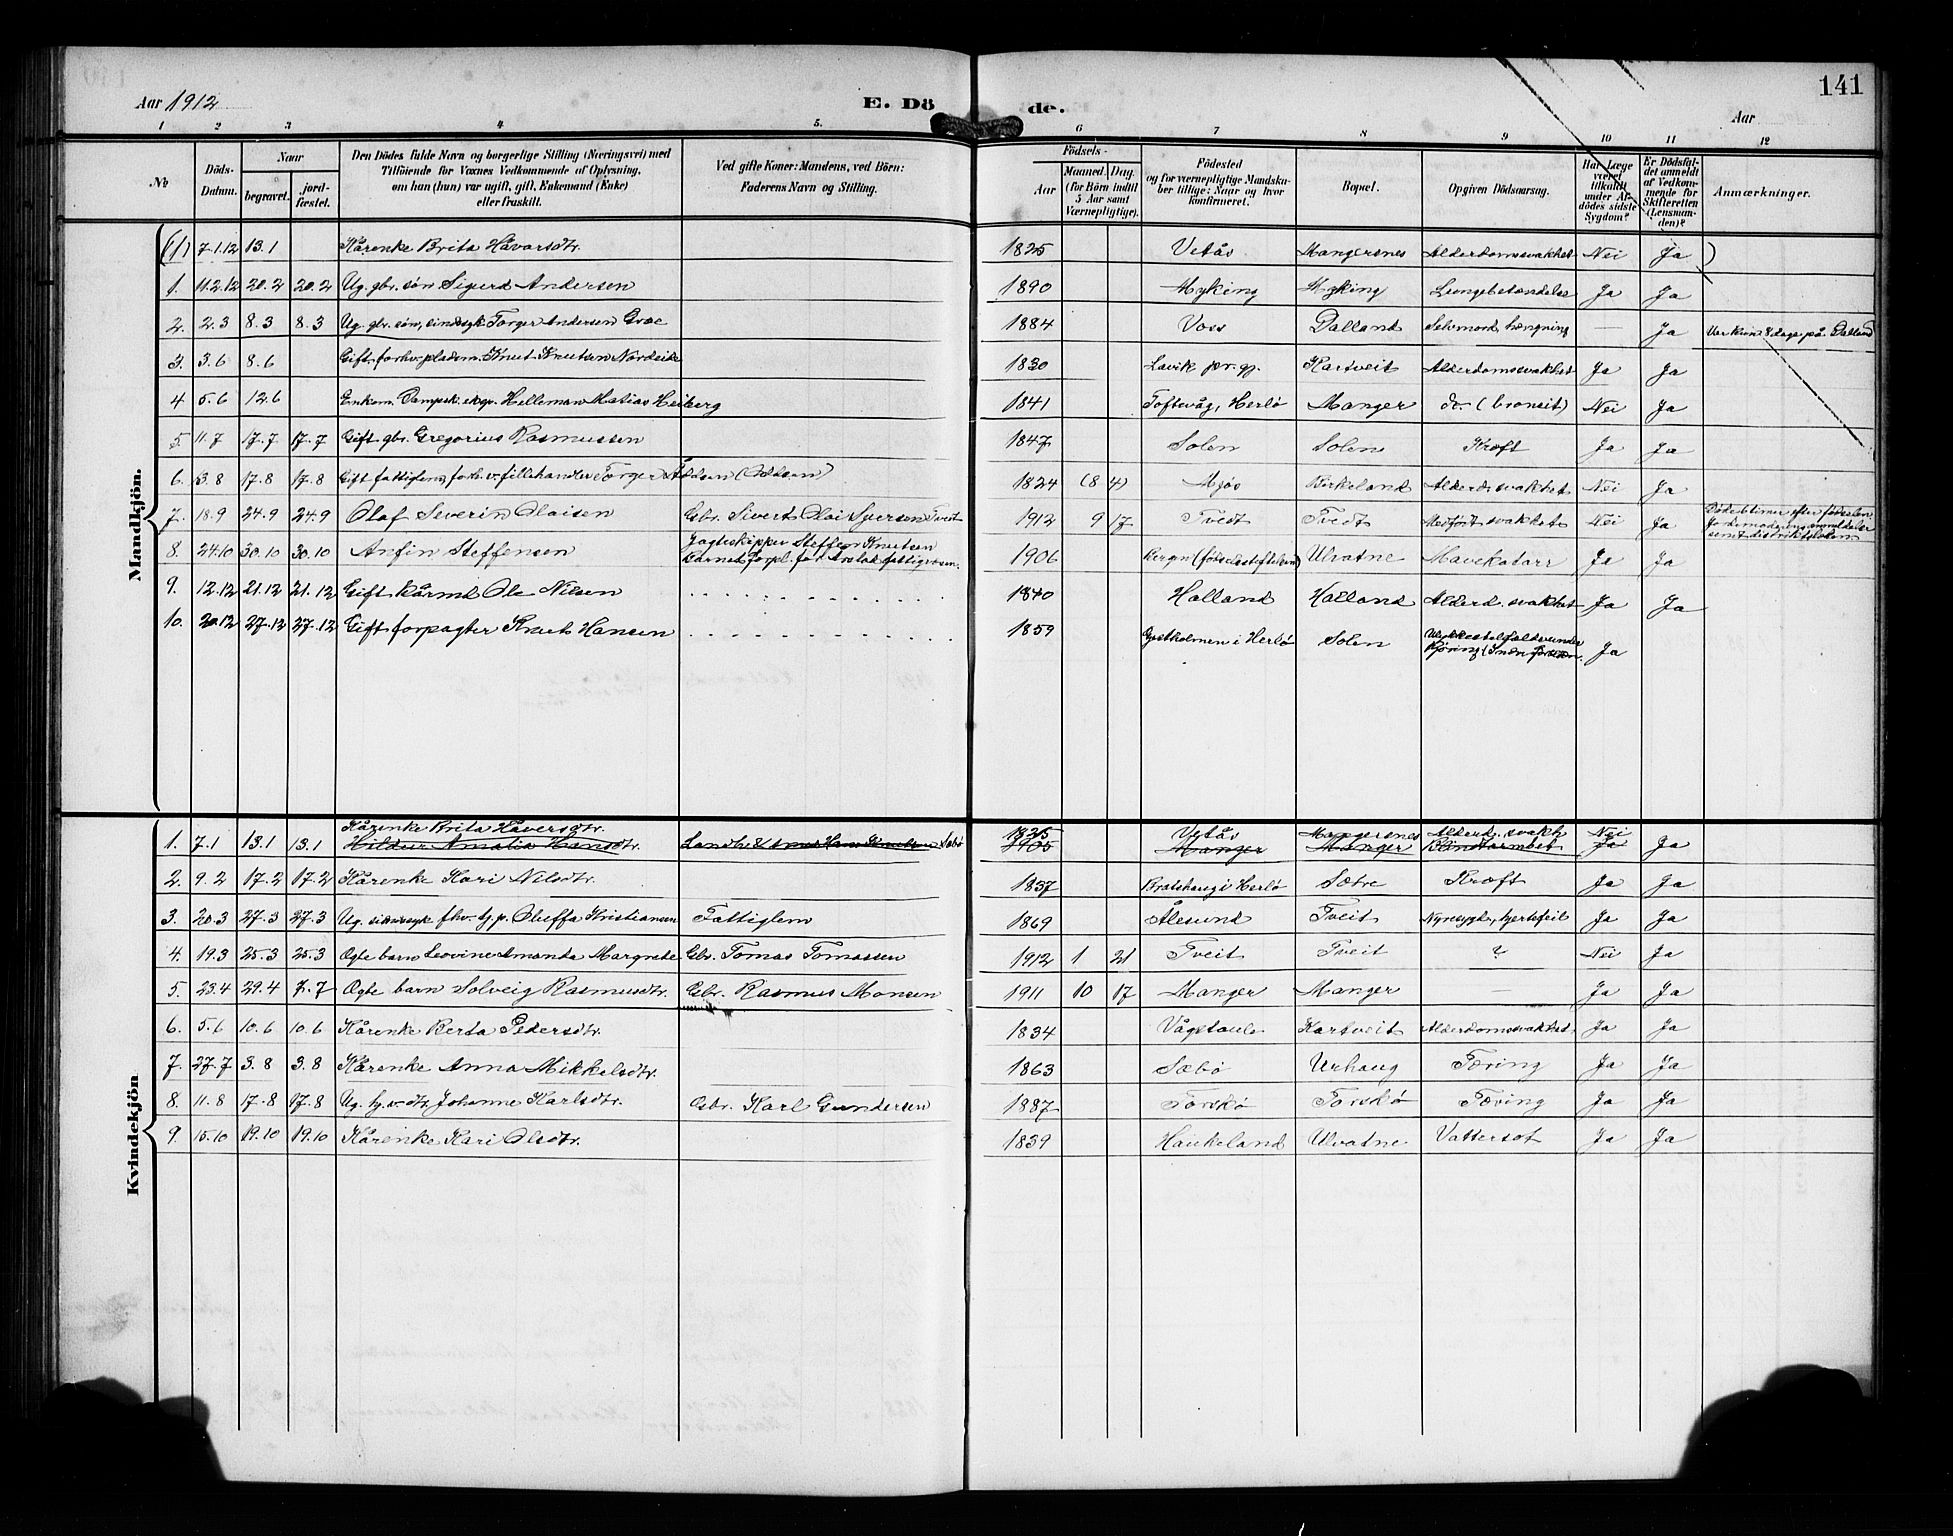 141
Aar 1912
E. Dö
de.
Aar
1 2 3 4 5. 6 7 8 9 10 11 12
No
Döds-Datum.
Naar
begravet.
jord-fæstet.
Den Dödes fulde Navn og borgerlige Stilling (Næringsvei) med
Tilföiende for Voxnes Vedkommende af Oplysning,
om han (hun) var ugift, gift, Enkemand (Enke)
eller fraskilt.
Ved gifte Koner: Mandens, ved Börn:
Faderens Navn og Stilling.
Födsels-
Aar
Maaned. Dag.
(for Börn indtil
5 Aar samt
Værnepligtige).
Födested
og for værnepligtige Mandska-
ber tillige: Naar og hvor
konfirmeret.
Bopæl.
Opgiven Dödsaarsag.
Har Læge
været
tilkaldt
under Af-
dödes sidste
Sygdom?
Er Dödsfal-
det anmeldt
af Vedkom-
mende for
Skifteretten
(Lensman-
den)?
Anmærkninger.
Mandkjön.
(1) 7.1.12 13.1 Kårenke Brita Håvarsdtr. 1825 Vetås Mangersnes Alderdomssvakhet Nei Ja )
1. 11.2.12 20.2 20.2 Ug. gbr. søn Sigurd Andersen 1890 Myking Myking Lungebetændelse Ja Ja
2. 2.3 8.3 8.3 Ug. gbr. søn, sindssyk Torger Andersen Grae 1884 Voss Dalland Selvmord hængning — Ja Var kun 8 dage på Dalland
3. 3.6 8.6 Gift forhv. pladsm. Knut Knutsen Nordeide 1830 Lavik pr. gj. Kartveit Alderdomssvakhet Ja Ja
4 5.6 12.6 Enkem. Dampsk. eksp. Helleman Matias Heiberg 1841 Toftevåg, Herlø Manger do. (bronkit) Nei Ja
5 11.7 17.7 17.7 Gift gbr. Gregorius Rasmussen 1847 Solen Solen Kræft Ja Ja
6. 13.8 17.8 17.8 Gift fattiglem, forhv. fillehandler Torger Åddsen (Oddsen) 1824 (8 4) Mjøs Birkeland Alderd. svakhet Nei Ja
7. 18.9 24.9 24.9 Olaf Severin Olaisen Gbr. Sivert Olai Sjursen Tvedt 1912 9 17 Tvedt Tvedt Medfødt svakhet Nei Ja
8. 24.10 30.10 30.10 Anfin Steffensen Jagteskipper Steffen Knutsen
Barnet forpl. for Årstad fattigvesen. 1906 Bergen (fødselsstiftelsen) Ulvatne Mavekatarr Ja Ja
9. 12.12 21.12 21.12 Gift kårmd. Ole Nilsen 1840 Halland Halland Alderd. svakhet Ja Ja
10. 20.12 27.12 27.12 Gift forpagter Knut Hansen 1859 Gjestholmen i Herlø Solen Ulykkestilfælde under
kjøring Ja
Kvindekjön
Kårenke Brita Håversdtr. 1825 Vetås Mangersnes Alderd. svakh. Nei
1. 7.1 13.1 13.1 Hildur Amalie Hansdtr. 1905 Manger Manger Blindtarmbet. Ja Ja
2. 9.2 17.2 17.2 Kårenke Kari Nilsdtr. 1837 Bratshaug i Herlø Sætre Kræft Ja Ja
3. 20.3 27.3 27.3 Ug. sindssyk fhv. tj. p. Oluffa Kristiansen Fattiglem 1869 Ålesund Tveit Nyresygd., hjertefeil Ja Ja
4. 19.3 25.3 25.3 Ægte barn Lovine Amanda Margrete Gbr. Tomas Tomassen 1912 1 21 Tveit Tveit ? Nei Ja
5. 23.4 29.4 7.7 Ægte barn Solveig Rasmusdtr. Gbr. Rasmus Monsen 1911 10 17 Manger Manger — Ja Ja
6. 5.6 10.6 10.6 Kårenke Berta Pedersdtr. 1834 Vågstaule Kartveit Alderdomssvakhet. Ja Ja
7. 27.7 3.8 3.8 Kårenke Anna Mikkelsdtr. 1863 Sæbø Urhaug Tæring Ja Ja
8. 11.8 17.8 17.8 Ug. tj. v. dtr. Johanne Karlsdtr. Gbr. Karl Gundersen 1887 Torskø Torskø Tæring Ja Ja
9. 15.10 19.10 19.10 Kårenke Kari Olsdtr. 1839 Haukeland Ulvatne Vattersot Ja Ja